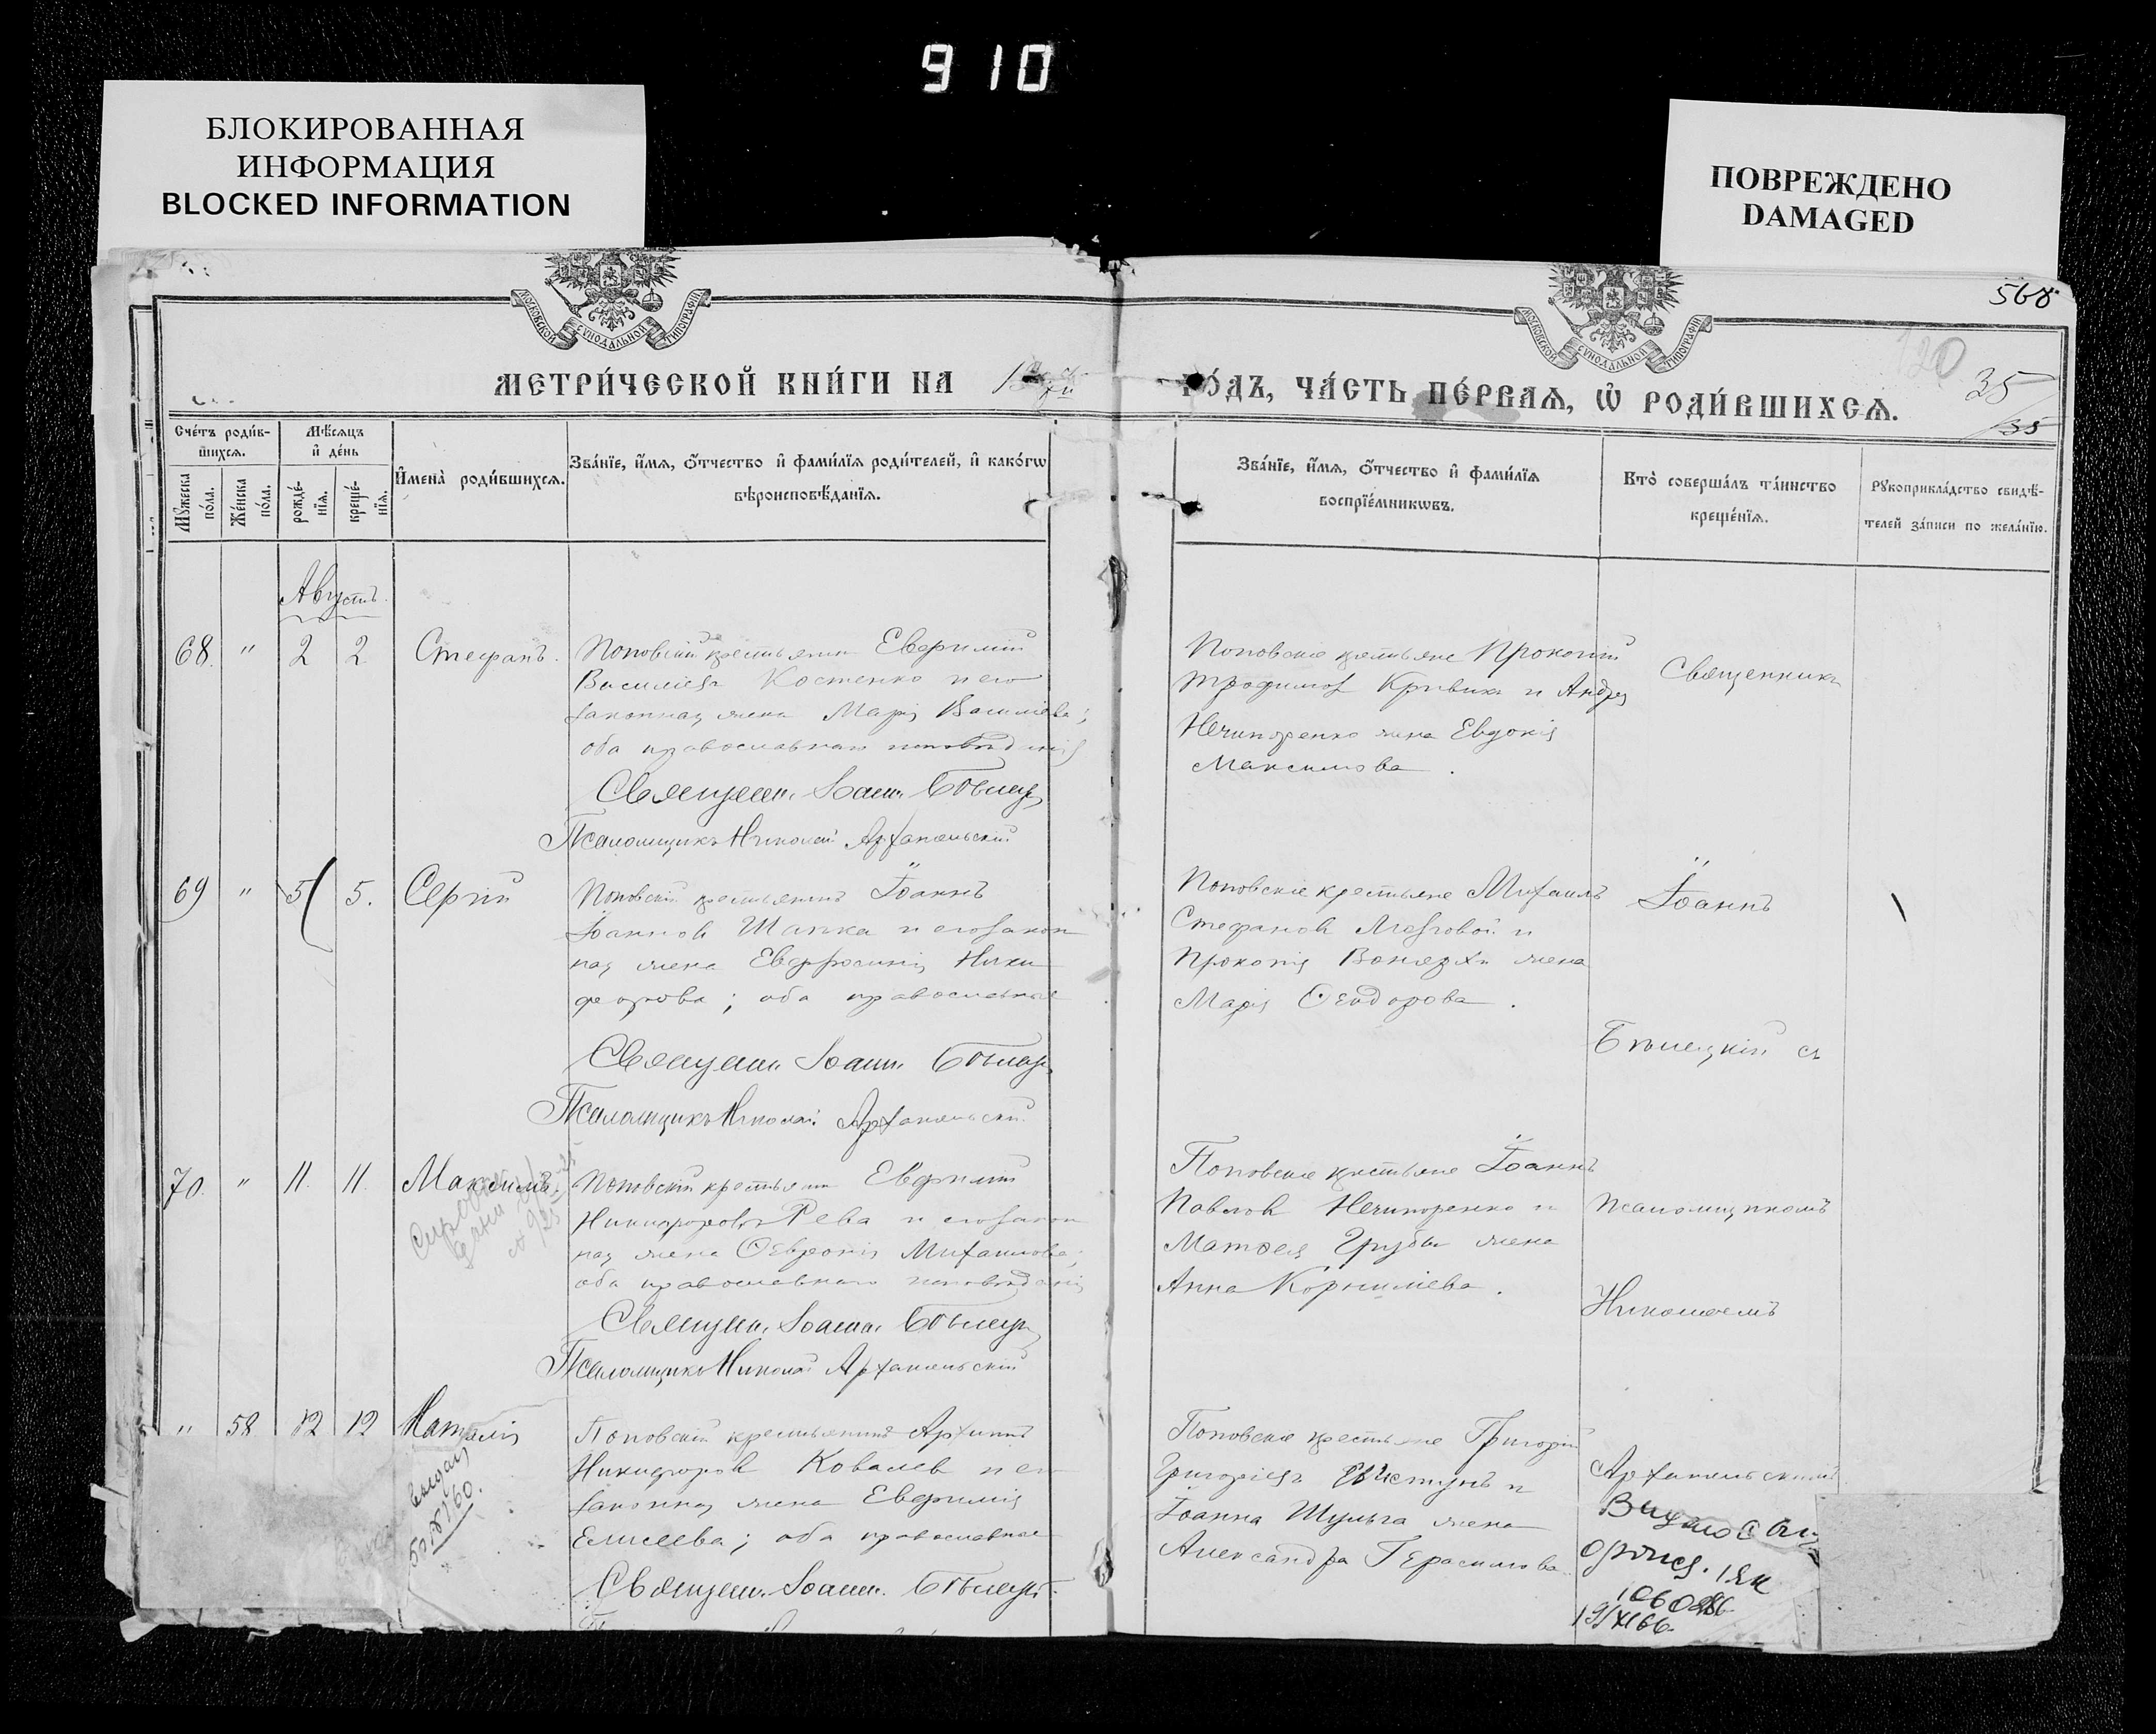 910
БЛОКИРОВАННАЯ
ИНФОРМАЦИЯ
BLOCKED INFORMATION
ПОВРЕЖДЕНО
DAMAGED
МОСКОВСКОЙ СѴНОДАЛЬНОЙ ТИПОГРАФІИ
МОСКОВСКОЙ СѴНОДАЛЬНОЙ ТИПОГРАФІИ
568
120
35
35
МЕТРИ́ЧЕСКОЙ КНИ́ГИ НА
ГО́ДЪ, ЧА́СТЬ ПЕ́РВАЯ, Ѡ РОДИ́ВШИХСЯ.
Сче́тъ роди́в-
шихся.
Мѣ́сяцъ
и́ де́нь
Мꙋ́жеска
по́ла.
Же́нска
по́ла.
рожде́-
нїя.
креще́-
нїя.
И҆мена̀ роди́вшихся.
Зва́нїе, и҆́мя, ѻ҆́тчество и҆ фами́лїя роди́телей, и҆ како́гѡ
вѣроисповѣ́данїя.
Зва́нїе, и҆́мя, ѻ҆́тчество и҆ фами́лїя
воспрїе́мникѡвъ.
Кто̀ соверша́лъ та́инство
креще́нїя.
Рꙋкоприкла́дство свидѣ́-
телей за́писи по жела́нїю.
Августъ
68. " 2 2 Стефанъ.
Поповскій крестьянин Евфимій
Василіев Костенко и его
законная жена Марія Василіева;
оба православнаго исповѣданія
Священ. Іоанн Бѣлец
Псаломщикъ Николай Архангельскій
Поповскіе крестьяне Прокопій
Трофимов Кривик и Андрея
Нечипоренко жена Евдокія
Максимова.
Священникъ
69 " 5 5. Сергій
Поповскій крестьянинъ Іоаннъ
Іоаннов Шапка и его закон
ная жена Евфросинія Ники
форова; оба православные
Священ. Іоанн. Бѣлец
Псаломщикъ Николай Архангельскій
Поповскіе крестьяне Михаилъ
Стефанов Мозговой и
Прокопія жена
Марія Ѳеодорова.
Іоаннъ
Бѣлецкій съ
70. " 11. 11. Максимъ.
Поповскій крестьянин Евфимій
Никифоровъ Рева и его закон
ная жена Михаилова;
оба православнаго исповѣданія
Священ. Іоанн. Бѣлец
Псаломщикъ Николай Архангельскій
Поповскіе крестьяне Іоаннъ
Павлов Нечипоренко и
Матѳея Грубы жена
Анна Корниліева.
псаломщикомъ
Николаемъ
" 58 12 12 Наталія
Поповскій крестьянинъ Архипъ
Никифоров Ковалев и его
законная жена Евфимія
Елисеева; оба православные
Священ. Іоанн. Бѣлецк
Поповскіе крестьяне Григорій
Григоріев и
Іоанна Шульга жена
Александра Герасимова.
Архангельскимъ
19/XI 66.